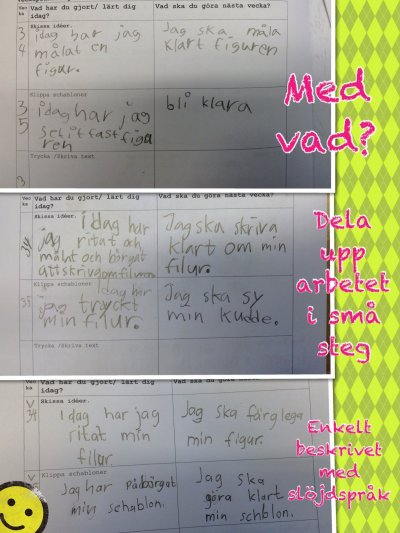 Vec
ka
Vad har du gjort/ lärt dig
idag?
Vad ska du göra nästa vecka?
Skissa idéer.
3
4
idag har jag
målat en
figur.
Jag ska måla
klart figuren
Klippa schabloner
3
5
idag har jag
bli klara
Trycka /Skriva text
Med
vad?
Vec
ka
Vad har du gjort/ lärt dig
idag?
Vad ska du göra nästa vecka?
Skissa idéer.
34
idag har
jag ritat och
målat och börgat
Jag ska skriva
klart om min
filur.
Klippa schabloner
35
Idag har
jag tryckt
min filur.
Jag ska sy
min kudde.
Trycka /Skriva text
Dela
upp
arbetet
i små
steg
Vec
ka
Vad har du gjort/ lärt dig
idag?
Vad ska du
Skissa idéer.
V
34
Idag har jag
ritat min
filur.
Jag ska färglega
min figur.
Klippa schabloner
V
Jag har påbörgat
min schablon.
Jag ska
göra klart
min schblon.
Enkelt
beskrivet
med
slöjdspråk